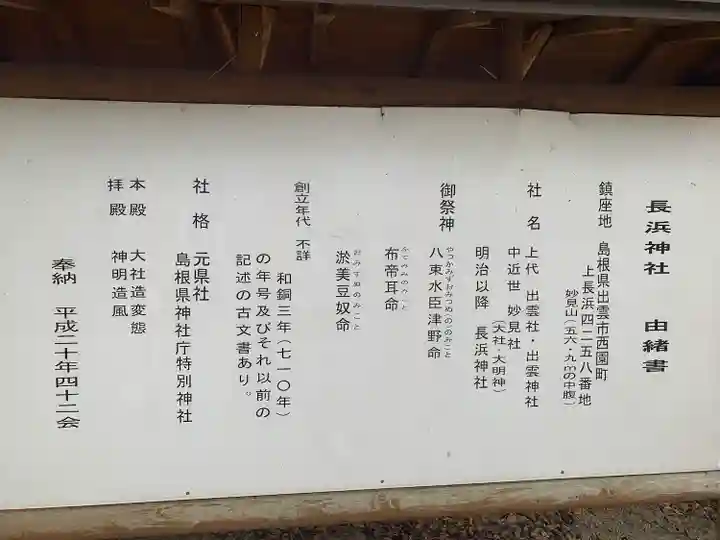 長浜神社 由緒書
鎮座地 島根県出雲市西園町
上長浜四二五八番地
妙見山(五六・九mの中腹)
社名 上代 出雲社・出雲神社
(大社・大明神)
中近世 妙見社
明治以降 長浜神社
御祭神 八束水臣津野命
布帝耳命
淤美豆奴命
創立年代 不詳
和銅三年(七一〇年)
の年号及びそれ以前の
記述の古文書あり。
社格 元県社
島根県神社庁特別神社
本殿 大社造変態
拝殿 神明造風
奉納 平成二十年四十二会